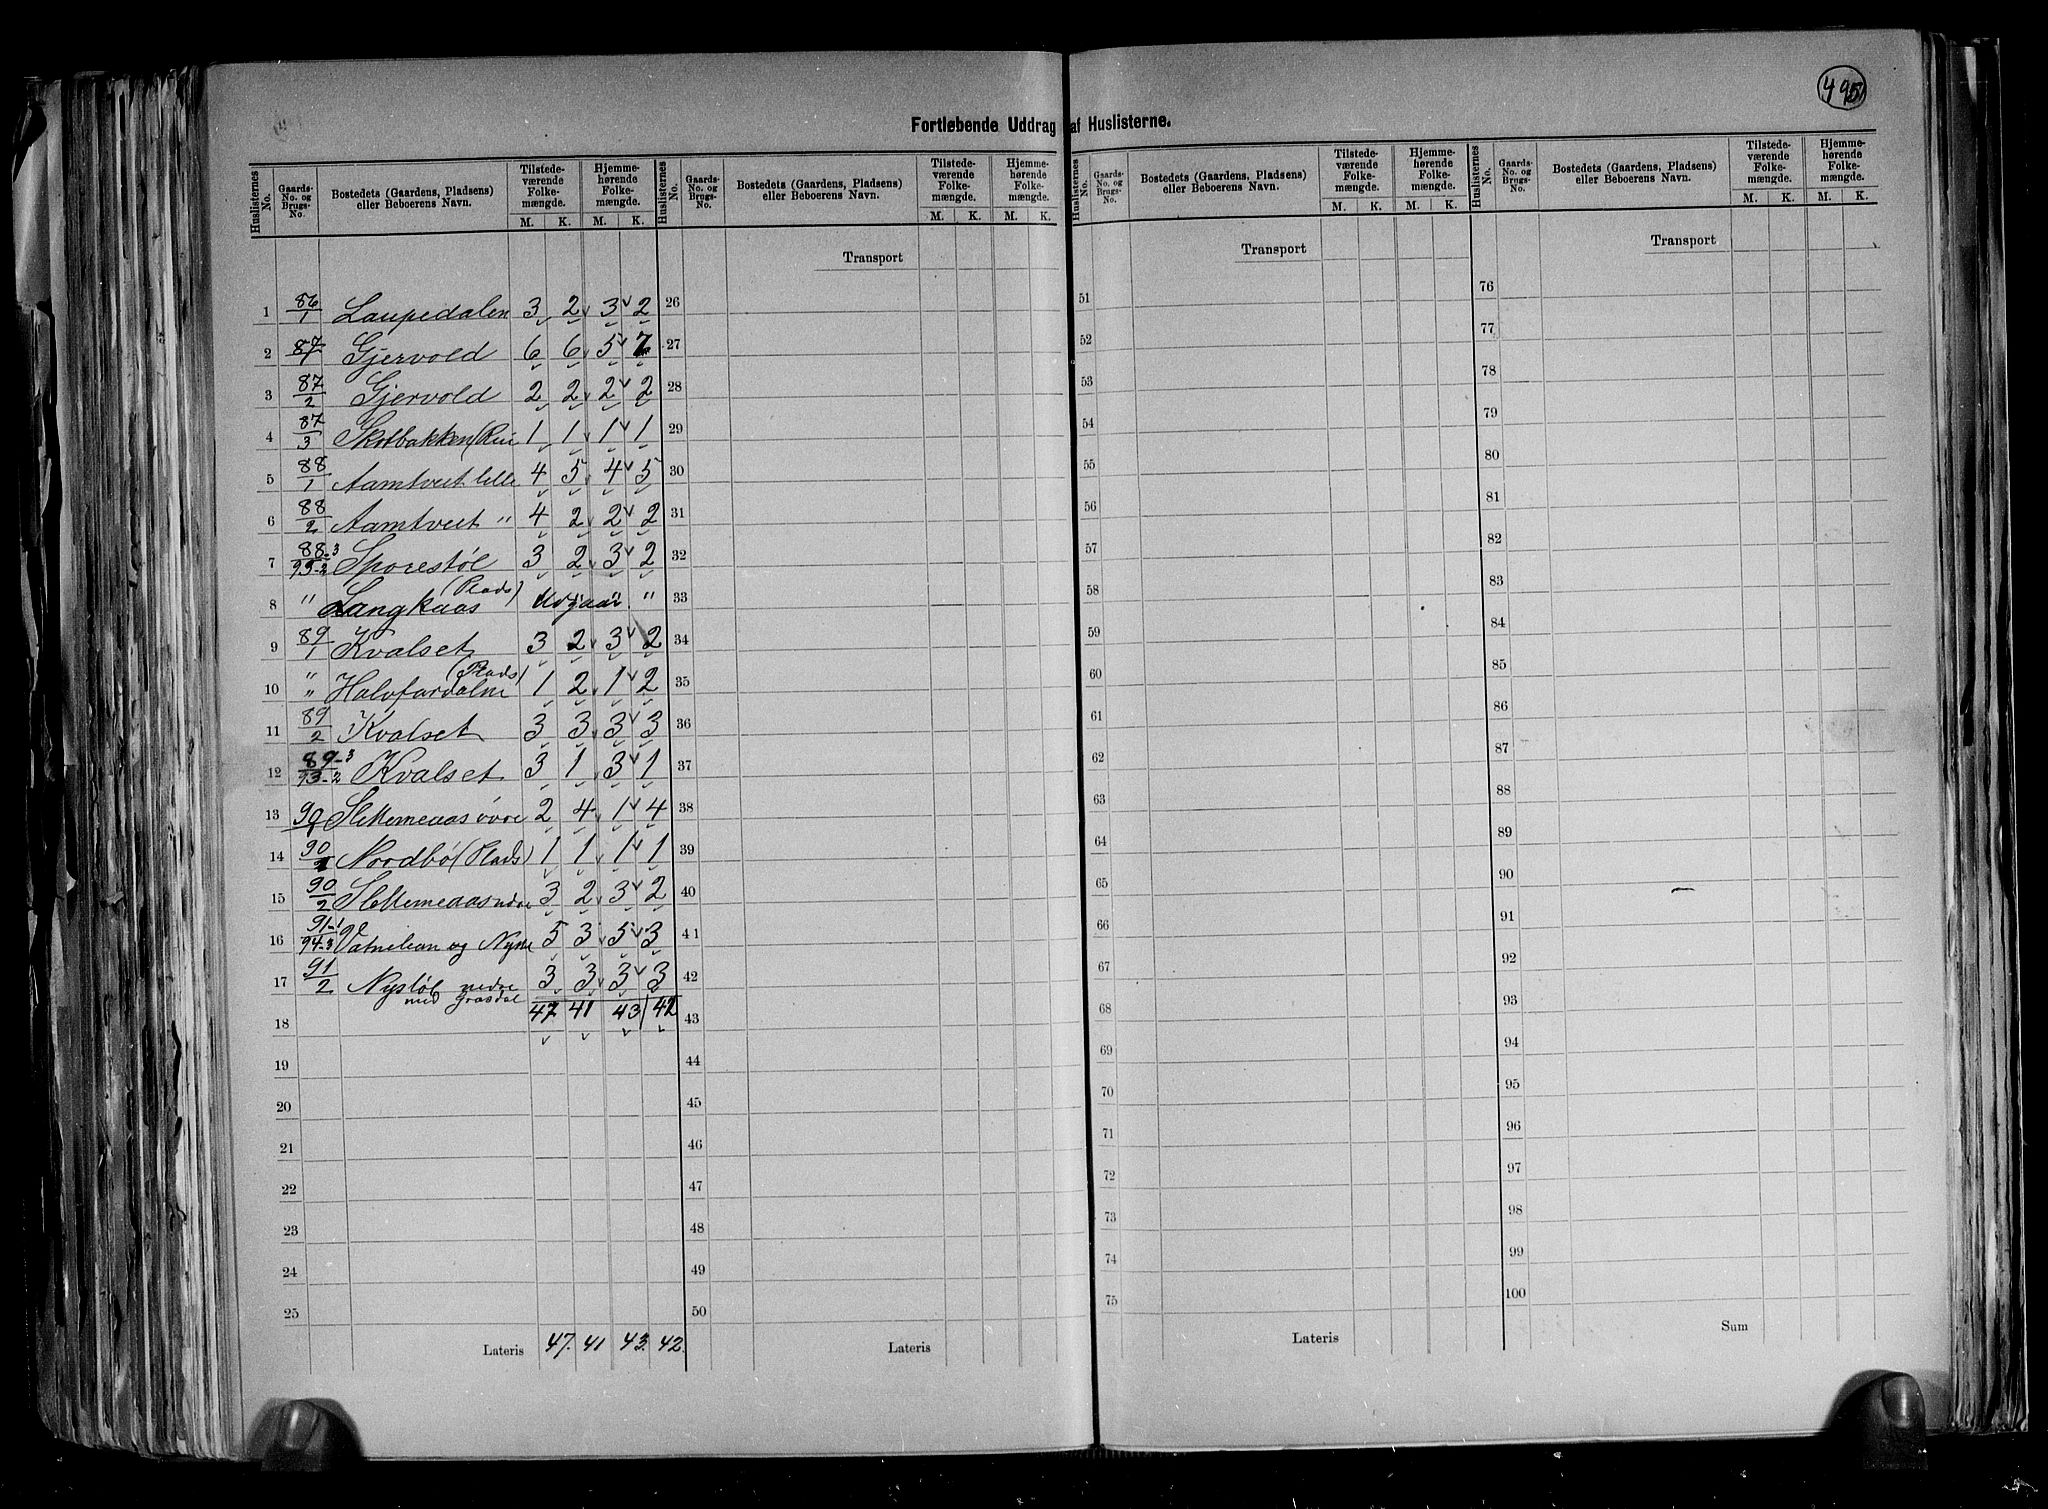 495
Fortløbende Uddrag af Huslisterne.
Huslisternes No. Gaards-No. og Brugs-No. Bostedets (Gaardens, Pladsens) eller Beboerens Navn. Tilstedeværende Folkemængde. M. K. Hjemmehørende Folkemængde. M. K.
1 86/1 Laupedalen 3 2 3 2
2 87/1 Gjervold 6 6 5 7
3 87/2 Gjervold 2 2 2 2
4 87/3 Skotbakken 1 1 1 1
5 88/1 Aamtveit lille 4 5 4 5
6 88/2 Aamtveit " 4 2 2 2
7 88-3/93-2 Sporestøl 3 2 3 2
8 " Langkaas (Plads) Udgaar " "
9 89/1 Kvalset 3 2 3 2
10 " " Halvfardalen (Plads) 1 2 1 2
11 89/2 Kvalset 3 3 3 3
12 89-3/93-2 Kvalset 3 1 3 1
13 90/1 Slettemeaas øvre 2 4 1 4
14 90/ Nordbö (Plads) 1 1 1 1
15 90/2 Slettemeaas nedre 3 2 3 2
16 91-1/94-3 Vatnelian og 5 3 5 3
17 91/2 Nystøl nedre med Grøsdal 3 3 3 3
18 47 41 43 42
19
20
21
22
23
24
25
Lateris 47. 41 43. 42.
Huslisternes No. Gaards-No. og Brugs-No. Bostedets (Gaardens, Pladsens) eller Beboerens Navn. Tilstedeværende Folkemængde. M. K. Hjemmehørende Folkemængde. M. K.
Transport
26
27
28
29
30
31
32
33
34
35
36
37
38
39
40
41
42
43
44
45
46
47
48
49
50
Lateris
Huslisternes No. Gaards-No. og Brugs-No. Bostedets (Gaardens, Pladsens) eller Beboerens Navn. Tilstedeværende Folkemængde. M. K. Hjemmehørende Folkemængde. M. K.
Transport
51
52
53
54
55
56
57
58
59
60
61
62
63
64
65
66
67
68
69
70
71
72
73
74
75
Lateris
Huslisternes No. Gaards-No. og Brugs-No. Bostedets (Gaardens, Pladsens) eller Beboerens Navn. Tilstedeværende Folkemængde. M. K. Hjemmehørende Folkemængde. M. K.
Transport
76
77
78
79
80
81
82
83
84
85
86
87
88
89
90
91
92
93
94
95
96
97
98
99
100
Sum